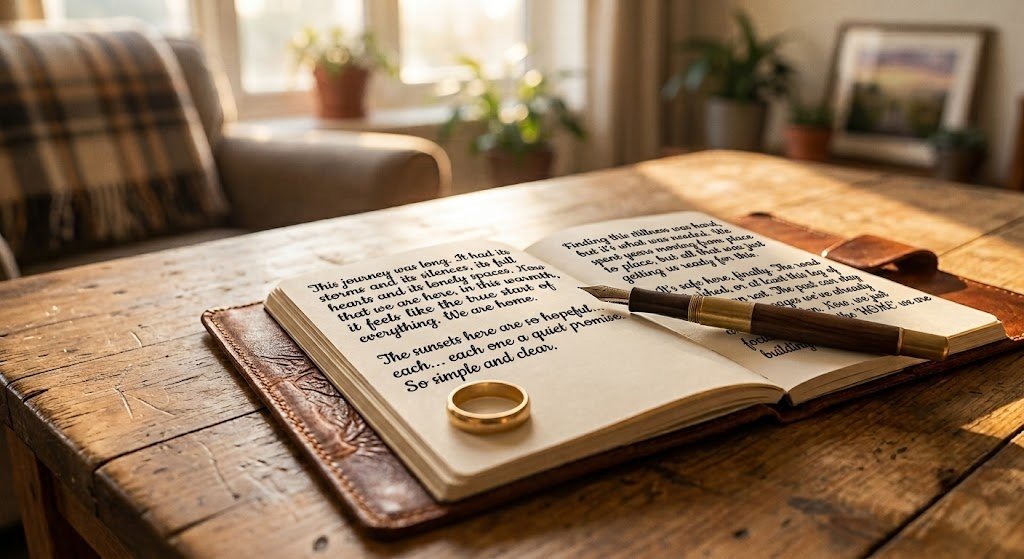 This journey was long. It had its
storms and its silences, its full
hearts and its lonely spaces. Now
that we are here, in this warmth,
it feels like the true start of
everything. We are home.
The sunsets here are so hopeful...
each... each one a quiet promise.
So simple and clear.
Finding this stillness was hard,
but it's what was needed. We
spent years moving from place
to place, but all that was just
getting us ready for this.
It's safe here, finally. The road
at this leg of
the past can only
we've already
Now we just
the "HOME" we are
building